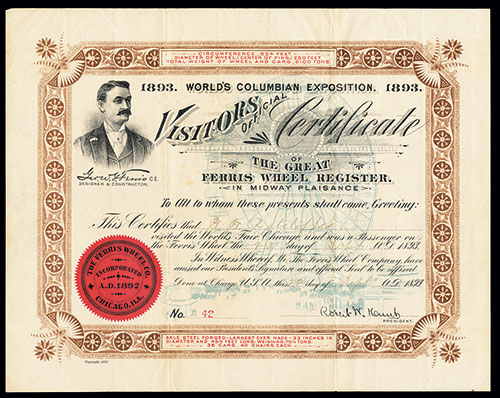 CIRCUMFERENCE 834 FEET
DIAMETER OF WHEEL, (CENTER OF PINS) 250 FEET
TOTAL WEIGHT OF WHEEL AND CARS, 2100 TONS
1893. WORLD'S COLUMBIAN EXPOSITION. 1893.
VISITORS OFFICIAL Certificate
OF
THE GREAT
FERRIS WHEEL REGISTER.
IN MIDWAY PLAISANCE
Geo W G Ferris C.E.
DESIGNER & CONSTRUCTOR.
To All to whom these presents shall come, Greeting:
This Certifies that
visited the World's Fair Chicago, and was a Passenger on
the Ferris Wheel the day of A.D. 1893
In Witness Whereof, We The Ferris Wheel Company have
caused our President's Signature and official Seal to be affixed
Done at Chicago U.S.A. this day of A.D. 1893
THE FERRIS WHEEL CO.
INCORPORATED
A.D. 1892
CHICAGO, ILL.
No. 42
Robert W. Hunt
PRESIDENT.
AXLE STEEL FORGED-LARGEST EVER MADE-33 INCHES IN
DIAMETER AND 45½ FEET LONG, WEIGHING, TON TONS.
36 CARS 40 CHAIRS EACH